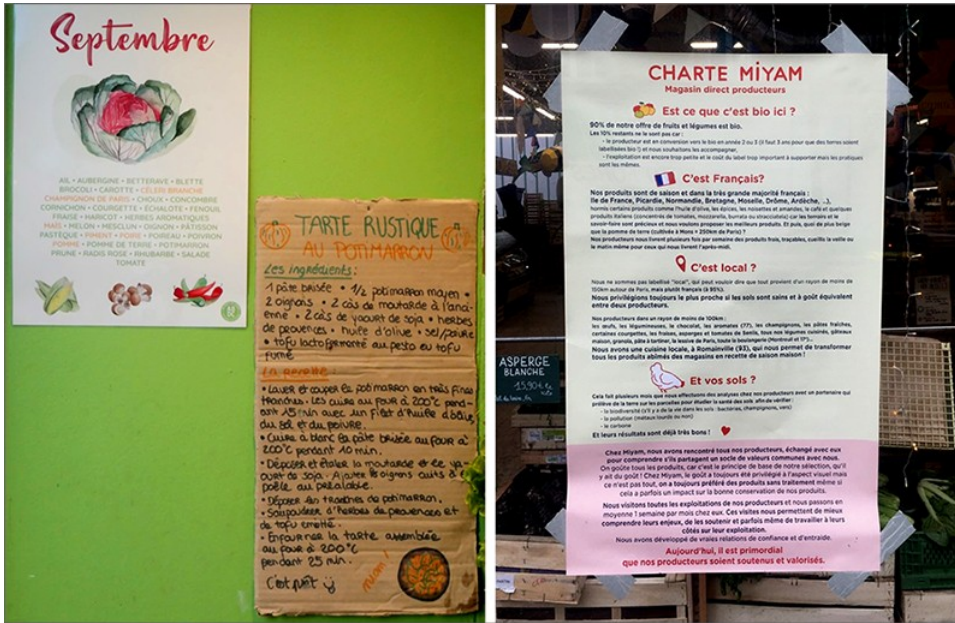 Septembre
AIL • AUBERGINE • BETTERAVE • BLETTE
BROCOLI • CAROTTE • CÉLERI BRANCHE
CHAMPIGNON DE PARIS • CHOUX • CONCOMBRE
CORNICHON • COURGETTE • ÉCHALOTE • FENOUIL
FRAISE • HARICOT • HERBES AROMATIQUES
MAÏS • MELON • MESCLUN • OIGNON • PÂTISSON
PASTÈQUE • PIMENT • POIRE • POIREAU • POIVRON
POMME • POMME DE TERRE • POTIMARRON
PRUNE • RADIS ROSE • RHUBARBE • SALADE
TOMATE
TARTE RUSTIQUE
AU POTIMARRON
Les ingrédients :
1 pâte brisée • 1/2 potimarron moyen •
2 oignons • 2 càs de moutarde à l'anci-
enne • 2 càs de yaourt de soja • herbes
de provences • huile d'olive • sel/poivre
• tofu lactofermenté au pesto ou tofu
fumé
La recette :
• Laver et couper le potimarron en très fines
tranches. Les cuire au four à 200°C pend
ant 15 min avec un filet d'huile d'olive,
du sel et du poivre.
• Cuire à blanc la pâte brisée au four à
200°C pendant 10 min.
• Déposer et étaler la moutarde et le ya-
ourt de soja. Ajouter les oignons cuits à la
poêle au préalable.
• Déposer les tranches de potimarron.
• Saupoudrer d'herbes de provences et
de tofu émietté.
• Enfourner la tarte assemblée
au four à 200°C
pendant 25 min.
C'est prêt
miam!
CHARTE MiYAM
Magasin direct producteurs
Est ce que c'est bio ici ?
90% de notre offre de fruits et légumes est bio.
Les 10% restants ne le sont pas car :
- le producteur est en conversion vers le bio en année 2 ou 3 (il faut 3 ans pour que des terres soient
labellisées bio !) et nous souhaitons les accompagner,
- l'exploitation est encore trop petite et le coût du label trop important à supporter mais les pratiques
sont les mêmes.
C'est Français?
Nos produits sont de saison et dans la très grande majorité français :
Ile de France, Picardie, Normandie, Bretagne, Moselle, Drôme, Ardèche, ..),
hormis certains produits comme l'huile d'olive, les épices, les noisettes et amandes, le café et quelques
produits italiens (concentrés de tomates, mozzarella, burrata ou straciatella) car les terroirs et le
savoir-faire sont précieux et nous voulons proposer les meilleurs produits. Et puis, quoi de plus beige
que la pomme de terre (cultivée à Mons = 250km de Paris) ?
Nos producteurs nous livrent plusieurs fois par semaine des produits frais, traçables, cueillis la veille ou
le matin même pour ceux qui nous livrent l'après-midi.
C'est local ?
Nous ne sommes pas labellisé "local", qui peut vouloir dire que tout provient d'un rayon de moins de
150km autour de Paris, mais plutôt français (à 95%).
Nous privilégions toujours le plus proche si les sols sont sains et à goût équivalent
entre deux producteurs.
Nos producteurs dans un rayon de moins de 100km :
les œufs, les légumineuses, le chocolat, les aromates (77), les champignons, les pâtes fraîches,
certaines courgettes, les fraises, asperges et tomates de Senlis, tous nos légumes cuisinés, gâteaux
maison, granola, pâte à tartiner, la lessive de Paris, toute la boulangerie (Montreuil et 17°)...
Nous avons une cuisine locale, à Romainville (93), qui nous permet de transformer
tous les produits abîmés des magasins en recette de saison maison !
Et vos sols ?
Cela fait plusieurs mois que nous effectuons des analyses chez nos producteurs avec un partenaire qui
prélève de la terre sur les parcelles pour étudier la santé des sols afin de vérifier :
- la biodiversité (s'il y a de la vie dans les sols : bactéries, champignons, vers)
- la pollution (métaux lourds ou non)
- le carbone
Et leurs résultats sont déjà très bons !
Chez Miyam, nous avons rencontré tous nos producteurs, échangé avec eux
pour comprendre s'ils partagent un socle de valeurs communes avec nous.
On goûte tous les produits, car c'est le principe de base de notre sélection, qu'il
y ait du goût ! Chez Miyam, le goût a toujours été privilégié à l'aspect visuel mais
ce n'est pas tout, on a toujours préféré des produits sans traitement même si
cela a parfois un impact sur la bonne conservation de nos produits.
Nous visitons toutes les exploitations de nos producteurs et nous passons en
moyenne 1 semaine par mois chez eux. Ces visites nous permettent de mieux
comprendre leurs enjeux, de les soutenir et parfois même de travailler à leurs
côtés sur leur exploitation.
Nous avons développé de vraies relations de confiance et d'entraide.
Aujourd'hui, il est primordial
que nos producteurs soient soutenus et valorisés.
ASPERGE
BLANCHE
15,90€